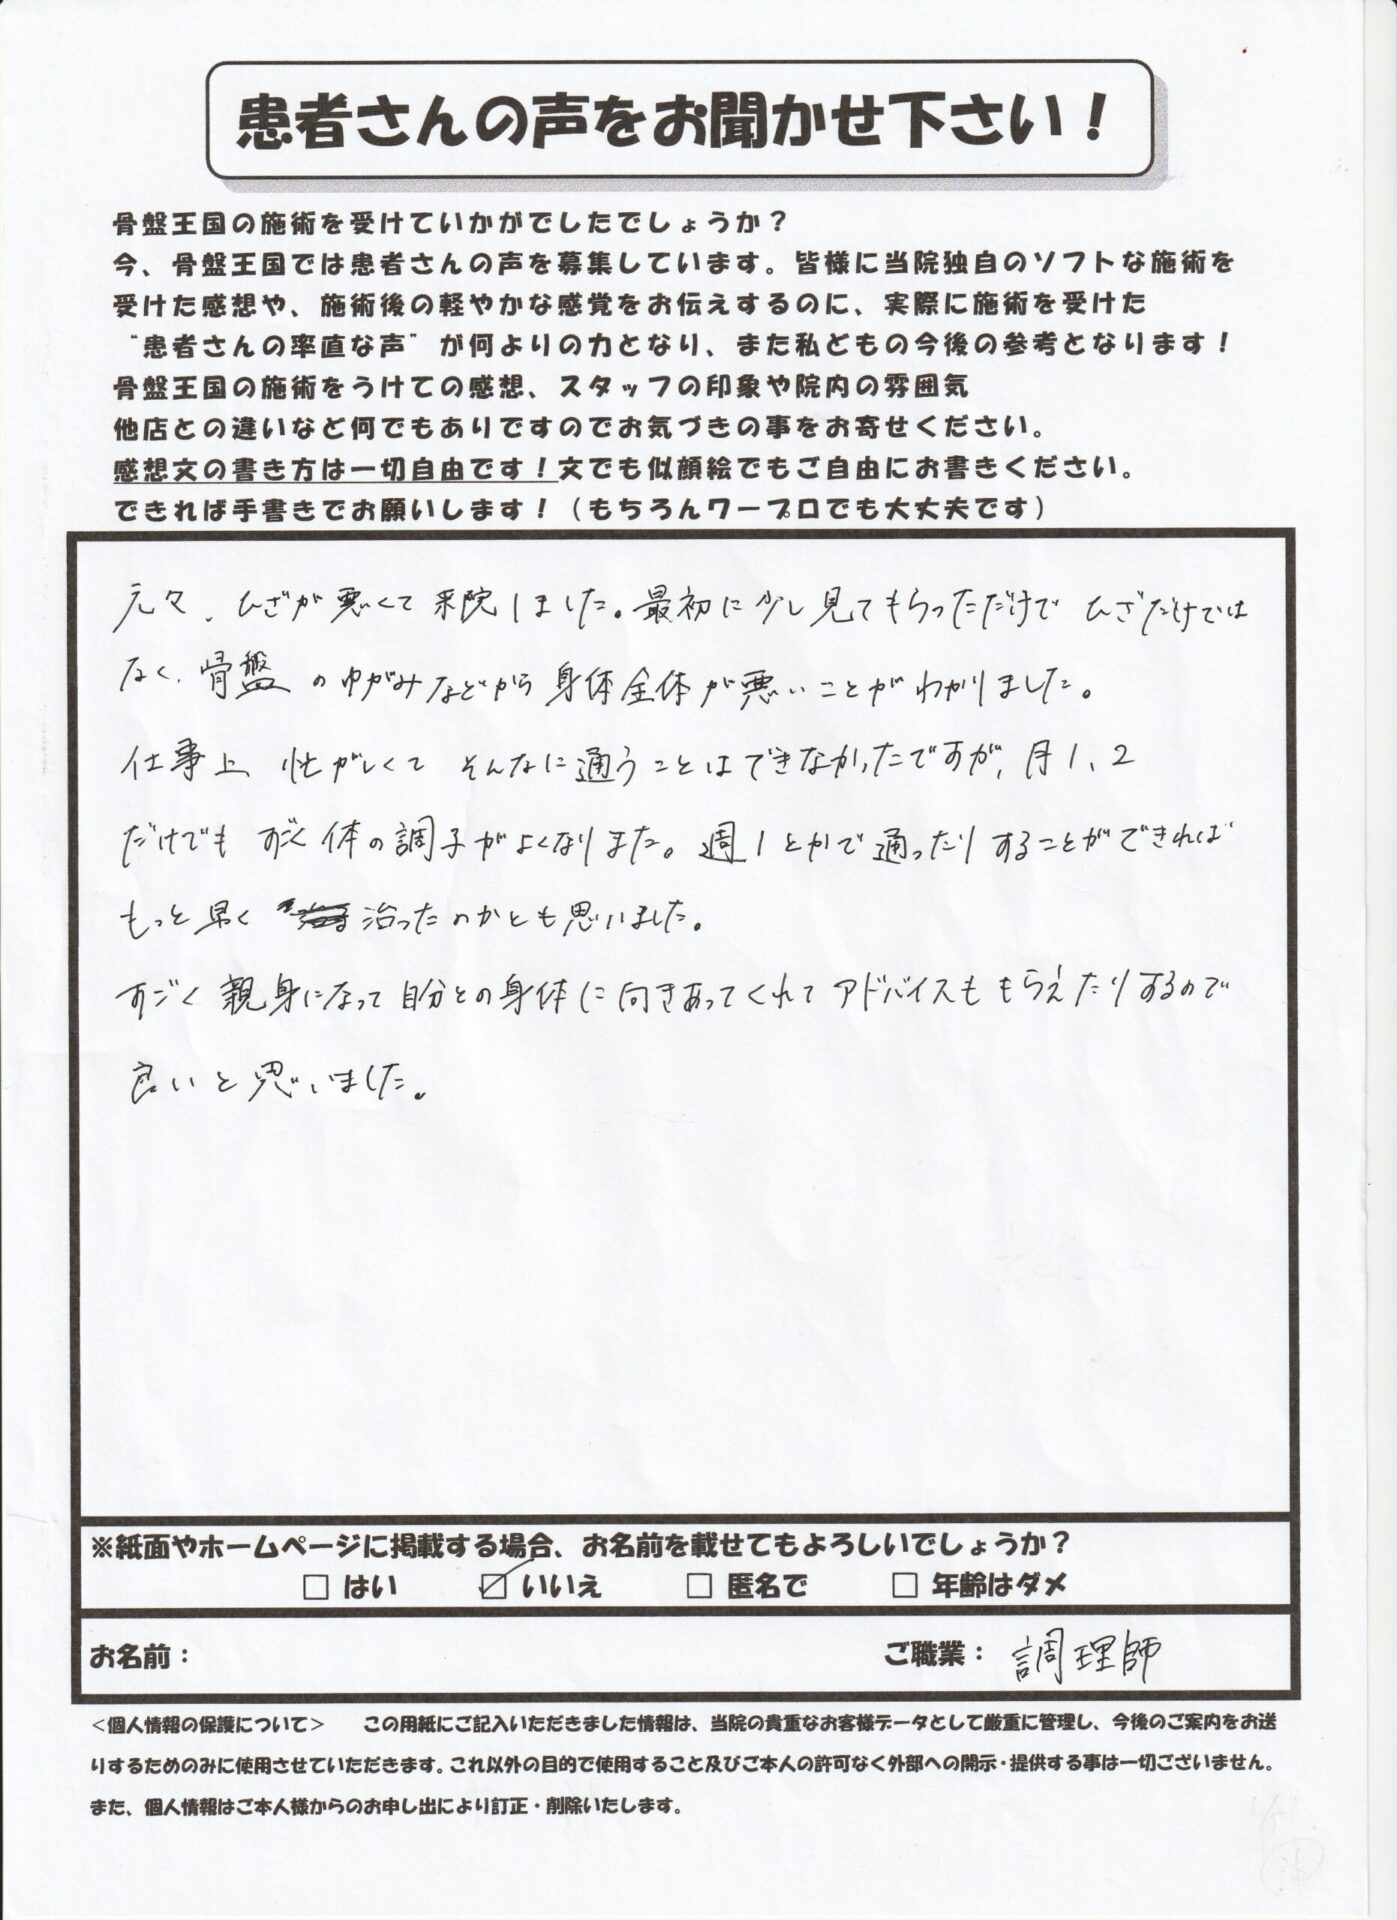 患者さんの声をお聞かせ下さい！
骨盤王国の施術を受けていかがでしたでしょうか？
今、骨盤王国では患者さんの声を募集しています。皆様に当院独自のソフトな施術を
受けた感想や、施術後の軽やかな感覚をお伝えするのに、実際に施術を受けた
“患者さんの率直な声”が何よりの力となり、また私どもの今後の参考となります！
骨盤王国の施術をうけての感想、スタッフの印象や院内の雰囲気
他店との違いなど何でもありですのでお気づきの事をお寄せください。
感想文の書き方は一切自由です！文でも似顔絵でもご自由にお書きください。
できれば手書きでお願いします！（もちろんワープロでも大丈夫です）
元々、ひざが悪くて来院しました。最初に少し見てもらっただけで ひざだけでは
なく、骨盤のゆがみなどから身体全体が悪いことがわかりました。
仕事上、忙がしくて そんなに通うことはできなかったですが、月1、2
だけでも すごく体の調子がよくなりました。週1とかで通ったりすることができれば
もっと早く 治ったのかとも思いました。
すごく親身になって自分との身体に向きあってくれてアドバイスももらえたりするので
良いと思いました。
※紙面やホームページに掲載する場合、お名前を載せてもよろしいでしょうか？
□ はい ☑ いいえ □ 匿名で □ 年齢はダメ
お名前： ご職業： 調理師
＜個人情報の保護について＞ この用紙にご記入いただきました情報は、当院の貴重なお客様データとして厳重に管理し、今後のご案内をお送
りするためのみに使用させていただきます。これ以外の目的で使用すること及びご本人の許可なく外部への開示・提供する事は一切ございません。
また、個人情報はご本人様からのお申し出により訂正・削除いたします。